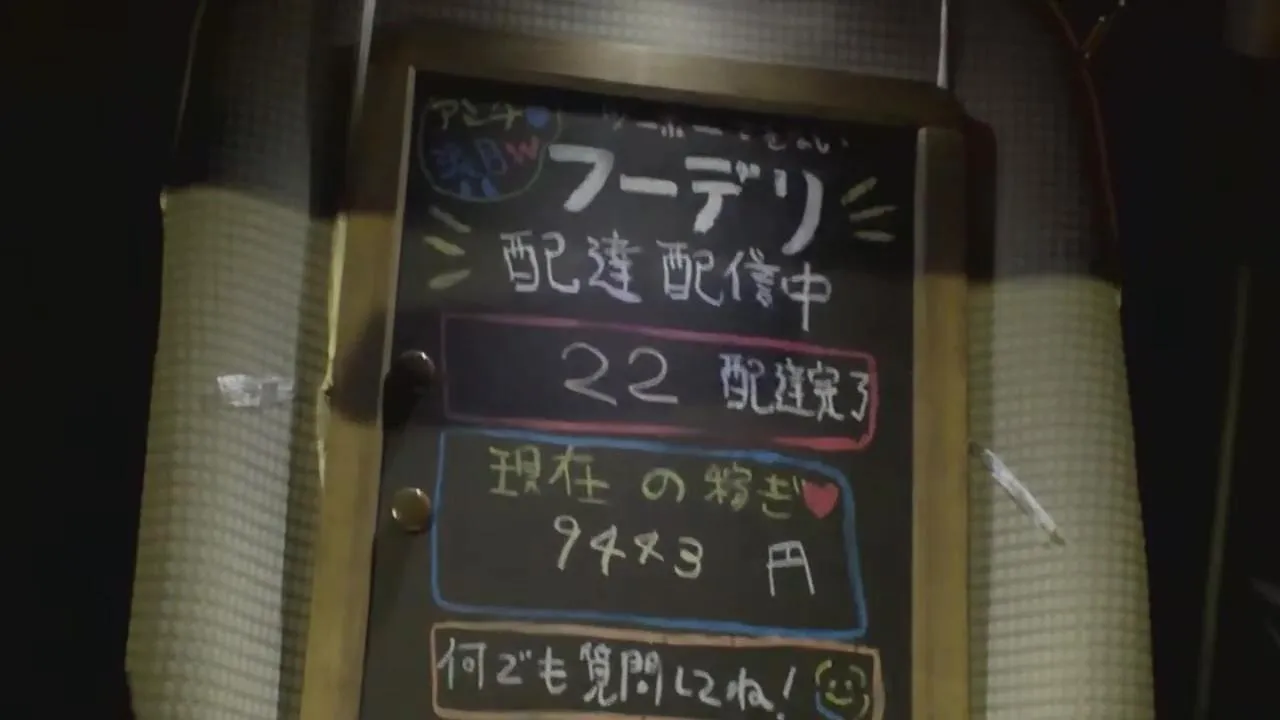 アンチ
フーデリ
配達配信中
22 配達完了
現在の稼ぎ
9443 円
何でも質問してね!